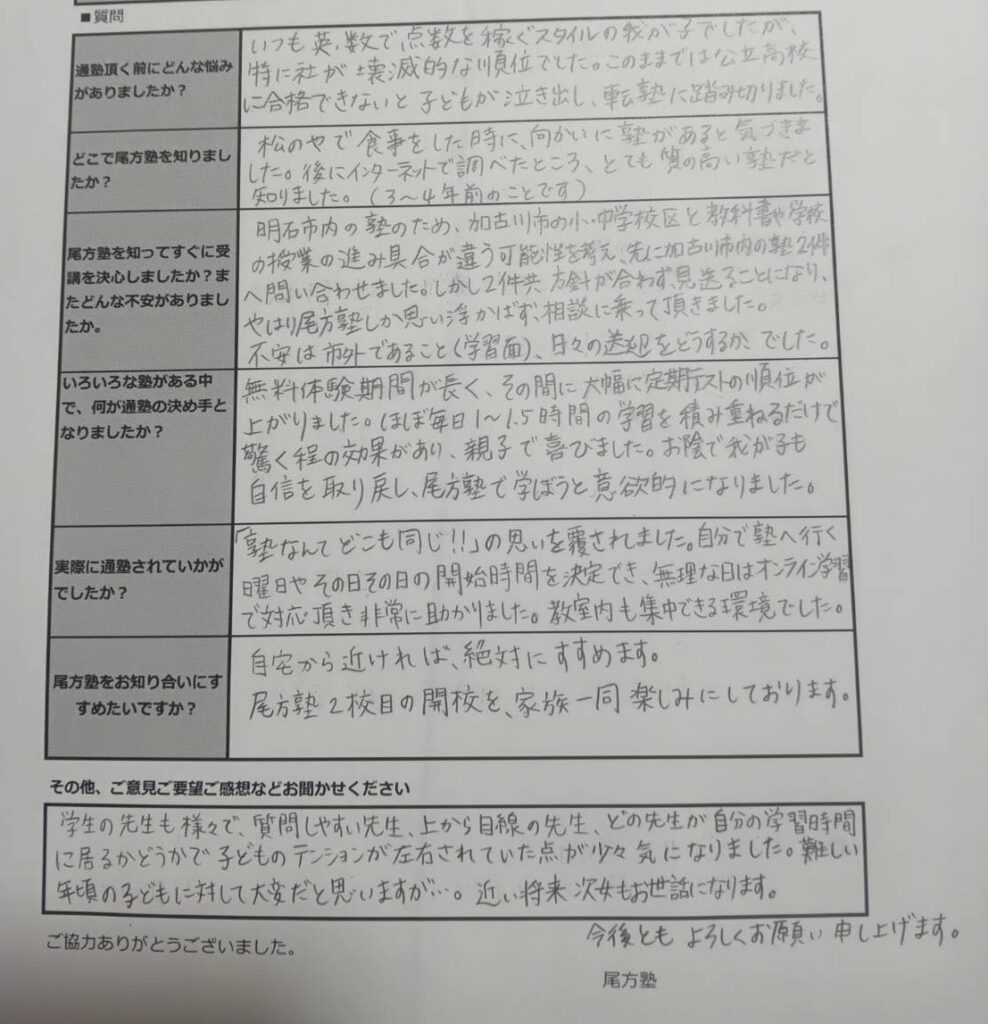 ■質問
通塾頂く前にどんな悩み
がありましたか？
いつも英・数で点数を稼ぐスタイルの我が子でしたが、
特に社が壊滅的な順位でした。このままでは公立高校
に合格できないと子どもが泣き出し、転塾に踏み切りました。
どこで尾方塾を知りまし
たか？
松のやで食事をした時に、向かいに塾があると気づきま
した。後にインターネットで調べたところ、とても質の高い塾だと
知りました。（3～4年前のことです）
尾方塾を知ってすぐに受
講を決心しましたか？ま
たどんな不安がありまし
たか。
明石市内の塾のため、加古川市の小・中学校区と教科書や学校
の授業の進み具合が違う可能性を考え、先に加古川市内の塾2件
へ問い合わせました。しかし2件共方針が合わず、見送ることになり、
やはり尾方塾しか思い浮かばず、相談に乗って頂きました。
不安は市外であること（学習面）、日々の送迎をどうするか、でした。
いろいろな塾がある中
で、何が通塾の決め手と
なりましたか？
無料体験期間が長く、その間に大幅に定期テストの順位が
上がりました。ほぼ毎日1～1.5時間の学習を積み重ねるだけで
驚く程の効果があり、親子で喜びました。お陰で我が子も
自信を取り戻し、尾方塾で学ぼうと意欲的になりました。
実際に通塾されていかが
でしたか？
「塾なんてどこも同じ!!」の思いを覆されました。自分で塾へ行く
曜日やその日その日の開始時間を決定でき、無理な日はオンライン学習
で対応頂き非常に助かりました。教室内も集中できる環境でした。
尾方塾をお知り合いにす
すめたいですか？
自宅から近ければ、絶対にすすめます。
尾方塾2校目の開校を、家族一同楽しみにしております。
その他、ご意見ご要望ご感想などお聞かせください
学生の先生も様々で、質問しやすい先生、上から目線の先生、どの先生が自分の学習時間
に居るかどうかで子どものテンションが左右されていた点が少々気になりました。難しい
年頃の子どもに対して大変だと思いますが…。近い将来次女もお世話になります。
今後ともよろしくお願い申し上げます。
ご協力ありがとうございました。
尾方塾